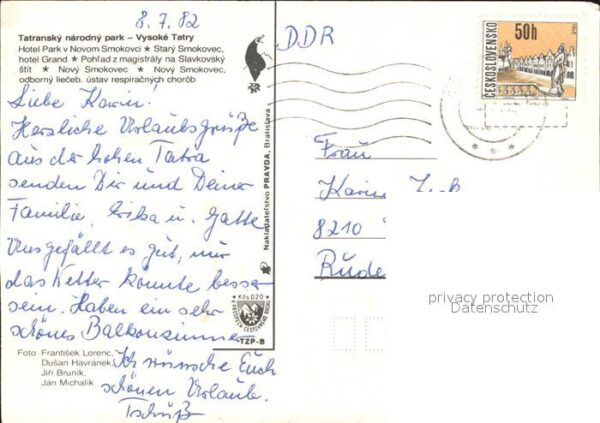 8.7.82
Tatranský národný park – Vysoké Tatry
Hotel Park v Novom Smokovci ★ Starý Smokovec,
hotel Grand ★ Pohľad z magistrály na Slavkovský
štít ★ Nový Smokovec ★ Nový Smokovec,
odborný liečeb. ústav respiračných chorôb
Liebe Karin!
Herzliche Urlaubsgrüße
aus der hohen Tatra
senden Dir und Deiner
Familie, Erika u. Gatte
Uns gefällt es gut, nur
das Wetter könnte besser
sein. Haben ein sehr
schönes Balkonzimmer
Ich wünsche Euch
schönen Urlaub.
Tschüß
Foto: František Lorenc,
Dušan Havránek,
Jiří Bruník,
Ján Michalík
Nakladateľstvo PRAVDA, Bratislava
Kčs 0,20
TZP-8
DDR
ČESKOSLOVENSKO
50h
Frau
Karin
8210
privacy protection
Datenschutz